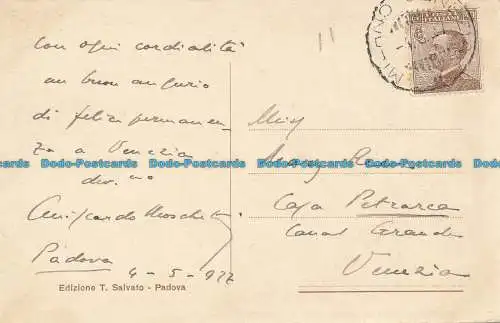 Con ogni cordialità
un buon augurio
di felice permanen
za a Venezia
dev.mo
Moschetti
Padova
4 - 5 - 922
Edizione T. Salvato - Padova
11
MILANO
Miss
Mary
Casa Petrarca
Canal Grande
Venezia
Dodo-Postcards Dodo-Postcards Dodo-Postcards Dodo-Postcards Dodo-Postcards